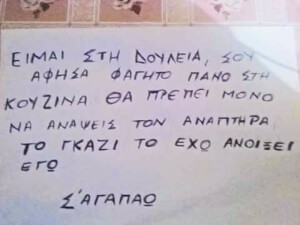 ΕΙΜΑΙ ΣΤΗ ΔΟΥΛΕΙΑ, ΣΟΥ
ΑΦΗΣΑ ΦΑΓΗΤΟ ΠΑΝΟ ΣΤΗ
ΚΟΥΖΙΝΑ ΘΑ ΠΡΕΠΕΙ ΜΟΝΟ
ΝΑ ΑΝΑΨΕΙΣ ΤΟΝ ΑΝΑΠΤΗΡΑ,
ΤΟ ΓΚΑΖΙ ΤΟ ΕΧΩ ΑΝΟΙΞΕΙ
ΕΓΩ
Σ'ΑΓΑΠΑΩ